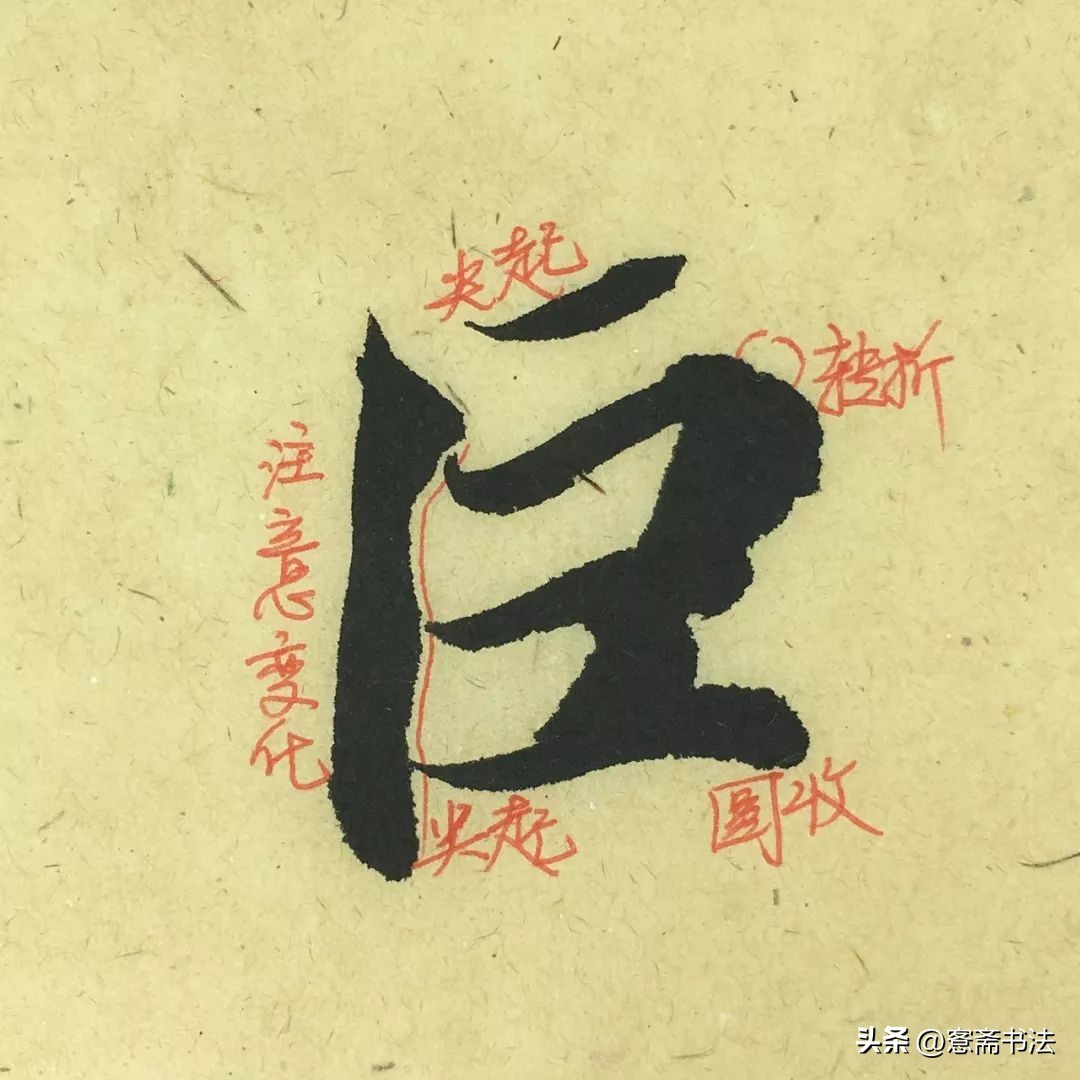 尖起
臣
转折
注意变化
尖起
圆收
头条 @愙斋书法